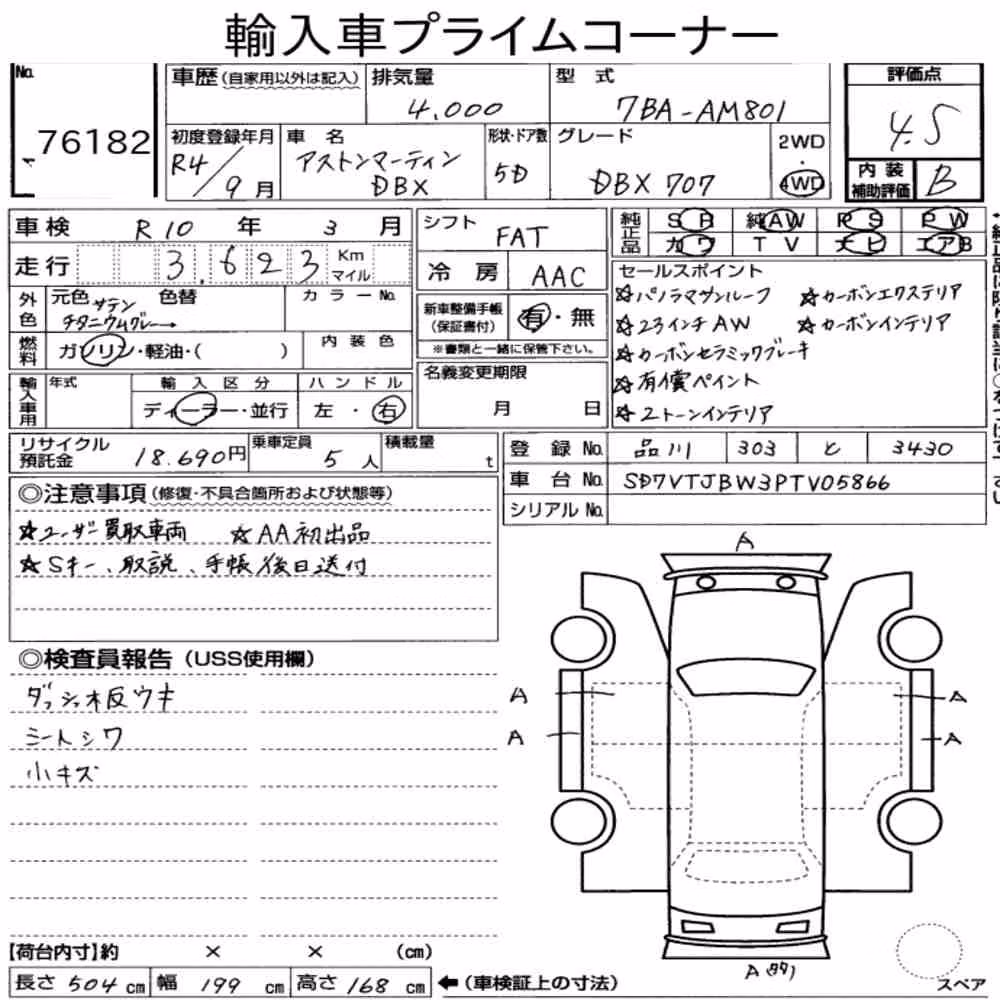 輸入車プライムコーナー
No. 76182
車歴(自家用以外は記入)
排気量 4.000
型式 7BA-AM801
評価点 4.5
初度登録年月 R4/9月
車名 アストンマーティン DBX
形状・ドア数 5D
グレード DBX 707
2WD・4WD
内装補助評価 B
車検 R10年 3月
シフト FAT
純正品 SR 純AW PS PW
カワ TV ナビ エアB
走行 3.623 Km マイル
冷房 AAC
セールスポイント
☆パノラマサンルーフ ☆カーボンエクステリア
☆23インチAW ☆カーボンインテリア
☆カーボンセラミックブレーキ
☆有償ペイント
☆2トーンインテリア
外色 元色 サテンチタニウムグレー→ 色替 カラーNo.
新車整備手帳(保証書付) 有・無
※書類と一緒に保管下さい。
燃料 ガソリン・軽油・( ) 内装色
名義変更期限 月 日
輸入車用 年式 輸入区分 ディーラー・並行 ハンドル 左・右
リサイクル預託金 18.690円
乗車定員 5人
積載量 t
登録No. 品川 303 と 3430
車台No. SD7VTJBW3PTV05866
シリアルNo.
◎注意事項(修復・不具合箇所および状態等)
☆ユーザー買取車両 ☆AA初出品
☆Sキー、取説、手帳後日送付
◎検査員報告(USS使用欄)
ダッシュ板反ウキ
シートシワ
小キズ
A
A A
A A
A
スペア
【荷台内寸】約 × × (cm)
長さ 504 cm 幅 199 cm 高さ 168 cm ←(車検証上の寸法)